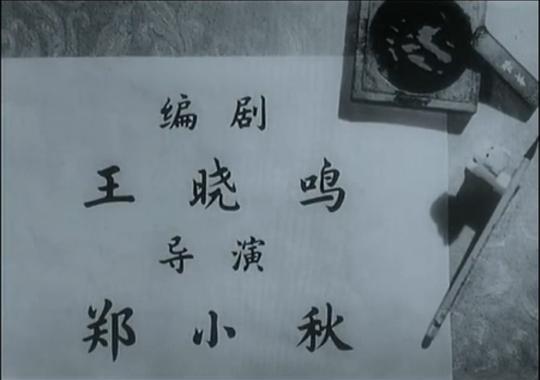 编剧
王晓鸣
导演
郑小秋